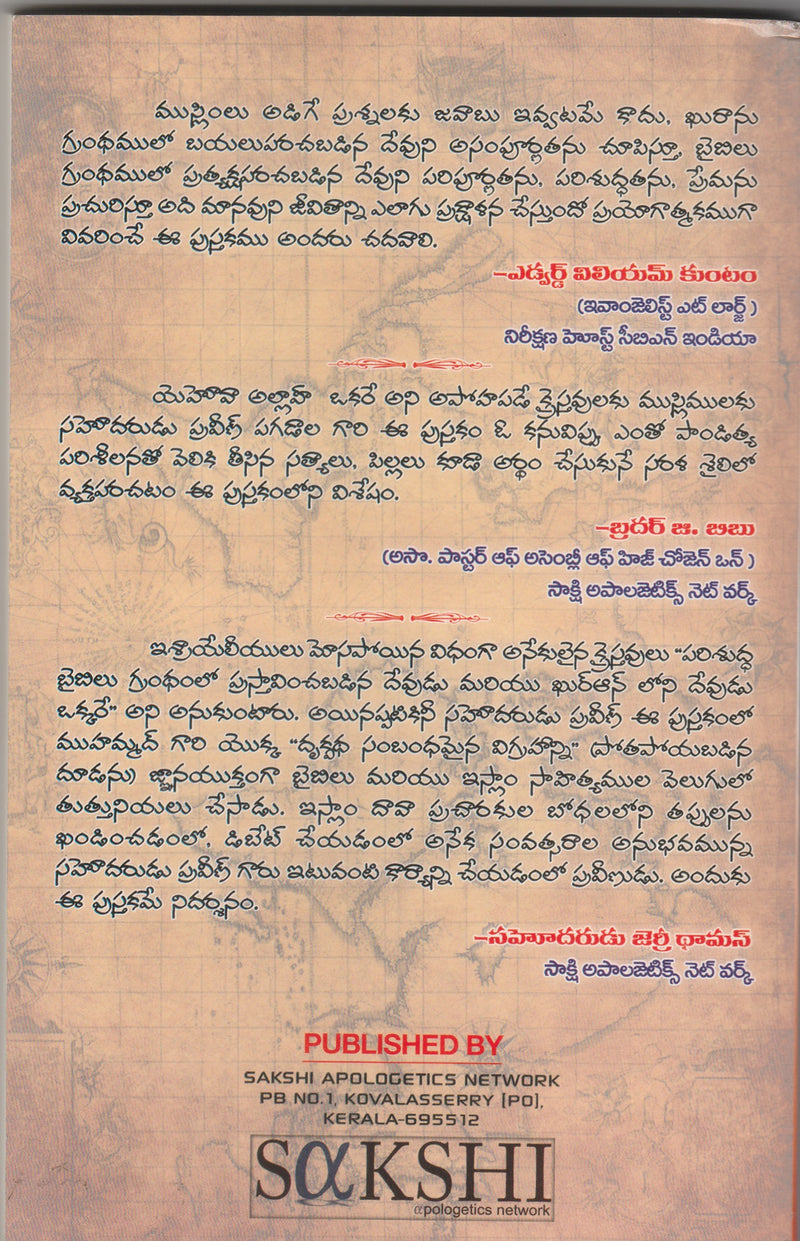 ముస్లింలు అడిగే ప్రశ్నలకు జవాబు ఇవ్వటమే కాదు, ఖురాను
గ్రంథములో బయలుపరచబడిన దేవుని అసంపూర్ణతను చూపిస్తూ, బైబిలు
గ్రంథములో ప్రత్యక్షపరచబడిన దేవుని పరిపూర్ణతను, పరిశుద్ధతను, ప్రేమను
ప్రచురిస్తూ అది మానవుని జీవితాన్ని ఎలాగు ప్రక్షాళన చేస్తుందో ప్రయోగాత్మకముగా
వివరించే ఈ పుస్తకము అందరు చదవాలి.
–ఎడ్వర్డ్ విలియమ్ కుంటం
(ఇవాంజెలిస్ట్ ఎట్ లార్జ్ )
నిరీక్షణ హెూస్ట్ సీబిఎన్ ఇండియా
యెహెూవా అల్లాహ్ ఒకరే అని అపోహపడే క్రైస్తవులకు ముస్లిములకు
సహెూదరుడు ప్రవీణ్ పగడాల గారి ఈ పుస్తకం ఓ కనువిప్పు ఎంతో పాండిత్య
పరిశీలనతో వెలికి తీసిన సత్యాలు, పిల్లలు కూడా అర్థం చేసుకునే సరళ శైలిలో
వ్యక్తపరచటం ఈ పుస్తకంలోని విశేషం.
–బ్రదర్ జి. బిబు
(అసొ. పాస్టర్ ఆఫ్ అసెంబ్లీ ఆఫ్ హిజ్ చోజెన్ ఒన్ )
సాక్షి అపాలజెటిక్స్ నెట్ వర్క్
ఇశ్రాయేలీయులు మోసపోయిన విధంగా అనేకులైన క్రైస్తవులు "పరిశుద్ధ
బైబిలు గ్రంథంలో ప్రస్తావించబడిన దేవుడు మరియు ఖుర్ఆన్ లోని దేవుడు
ఒక్కరే" అని అనుకుంటారు. అయినప్పటికినీ సహెూదరుడు ప్రవీణ్ ఈ పుస్తకంలో
ముహమ్మద్ గారి యొక్క "దృక్పథ సంబంధమైన విగ్రహాన్ని" (పోతపోయబడిన
దూడను) జ్ఞానయుక్తంగా బైబిలు మరియు ఇస్లాం సాహిత్యముల వెలుగులో
తుత్తునియలు చేసాడు. ఇస్లాం దావా ప్రచారకుల బోధలలోని తప్పులను
ఖండించడంలో, డిబేట్ చేయడంలో అనేక సంవత్సరాల అనుభవమున్న
సహెూదరుడు ప్రవీణ్ గారు ఇటువంటి కార్యాన్ని చేయడంలో ప్రవీణుడు. అందుకు
ఈ పుస్తకమే నిదర్శనం.
–సహెూదరుడు జెర్రీ థామస్
సాక్షి అపాలజెటిక్స్ నెట్ వర్క్
PUBLISHED BY
SAKSHI APOLOGETICS NETWORK
PB NO.1, KOVALASSERRY (PO),
KERALA-695512
SαKSHI
αpologetics network